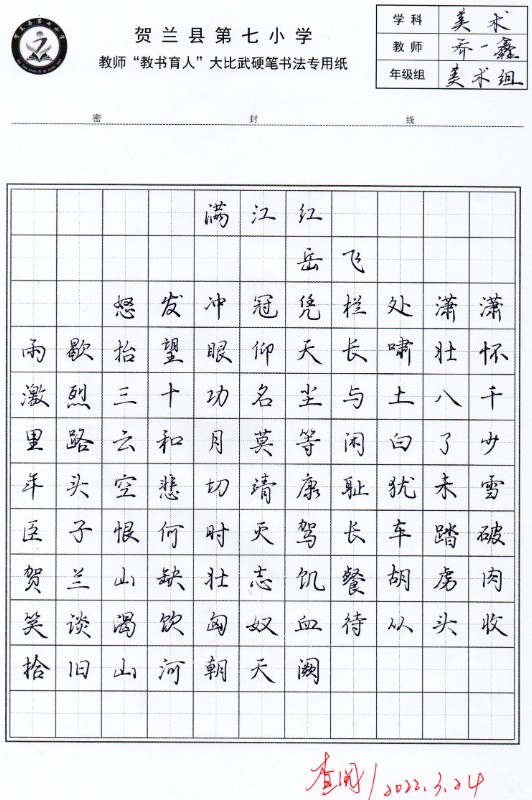 贺兰县第七小学
教师“教书育人”大比武硬笔书法专用纸
学科 美术
教师 乔一鑫
年级组 美术组
密 封 线
满江红
岳飞
怒发冲冠凭栏处潇潇
雨歇抬望眼仰天长啸壮怀
激烈三十功名尘与土八千
里路云和月莫等闲白了少
年头空悲切靖康耻犹未雪
臣子恨何时灭驾长车踏破
贺兰山缺壮志饥餐胡虏肉
笑谈渴饮匈奴血待从头收
拾旧山河朝天阙
查阅 2022.3.24